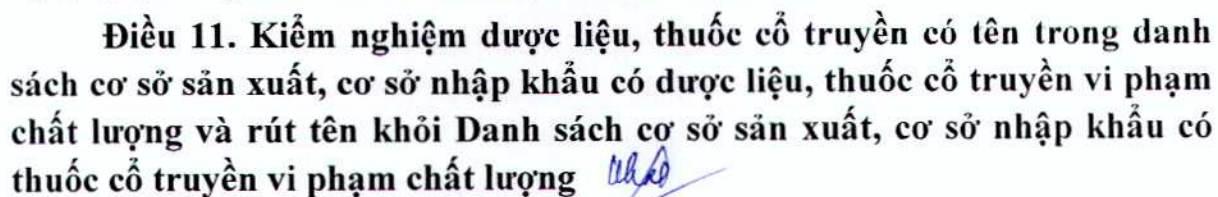 Điều 11. Kiểm nghiệm dược liệu, thuốc cổ truyền có tên trong danh
sách cơ sở sản xuất, cơ sở nhập khẩu có dược liệu, thuốc cổ truyền vi phạm
chất lượng và rút tên khỏi Danh sách cơ sở sản xuất, cơ sở nhập khẩu có
thuốc cổ truyền vi phạm chất lượng